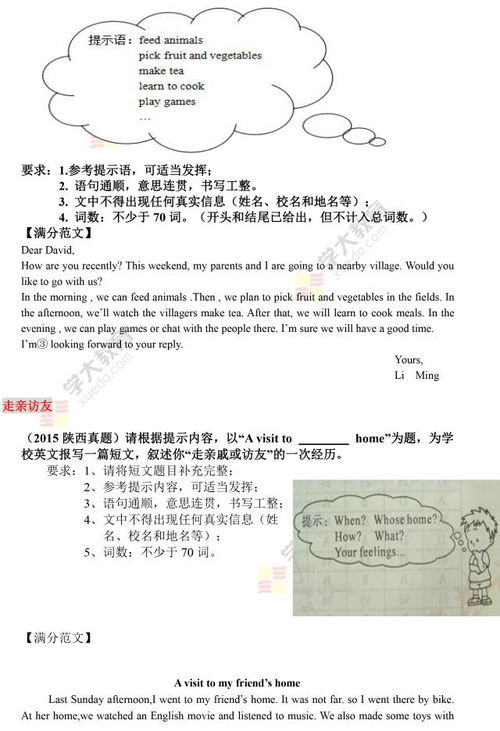 提示语：feed animals
pick fruit and vegetables
make tea
learn to cook
play games
...
要求：1.参考提示语，可适当发挥；
2. 语句通顺，意思连贯，书写工整。
3. 文中不得出现任何真实信息（姓名、校名和地名等）；
4. 词数：不少于 70 词。（开头和结尾已给出，但不计入总词数。）
【满分范文】
Dear David,
How are you recently? This weekend, my parents and I are going to a nearby village. Would you
like to go with us?
In the morning , we can feed animals .Then , we plan to pick fruit and vegetables in the fields. In
the afternoon, we’ll watch the villagers make tea. After that, we will learn to cook meals. In the
evening , we can play games or chat with the people there. I’m sure we will have a good time.
I’m③ looking forward to your reply.
Yours,
Li Ming
走亲访友
（2015 陕西真题）请根据提示内容，以“A visit to ________ home”为题，为学
校英文报写一篇短文，叙述你“走亲戚或访友”的一次经历。
要求：1、请将短文题目补充完整；
2、参考提示内容，可适当发挥；
3、语句通顺，意思连贯，书写工整；
4、文中不得出现任何真实信息（姓
名、校名和地名等）；
5、词数：不少于 70 词。
提示：When? Whose home?
How? What?
Your feelings...
【满分范文】
A visit to my friend’s home
Last Sunday afternoon,I went to my friend’s home. It was not far. so I went there by bike.
At her home,we watched an English movie and listened to music. We also made some toys with
学大教育
xueda.com
学大教育
xueda.com
学大教育
xueda.com